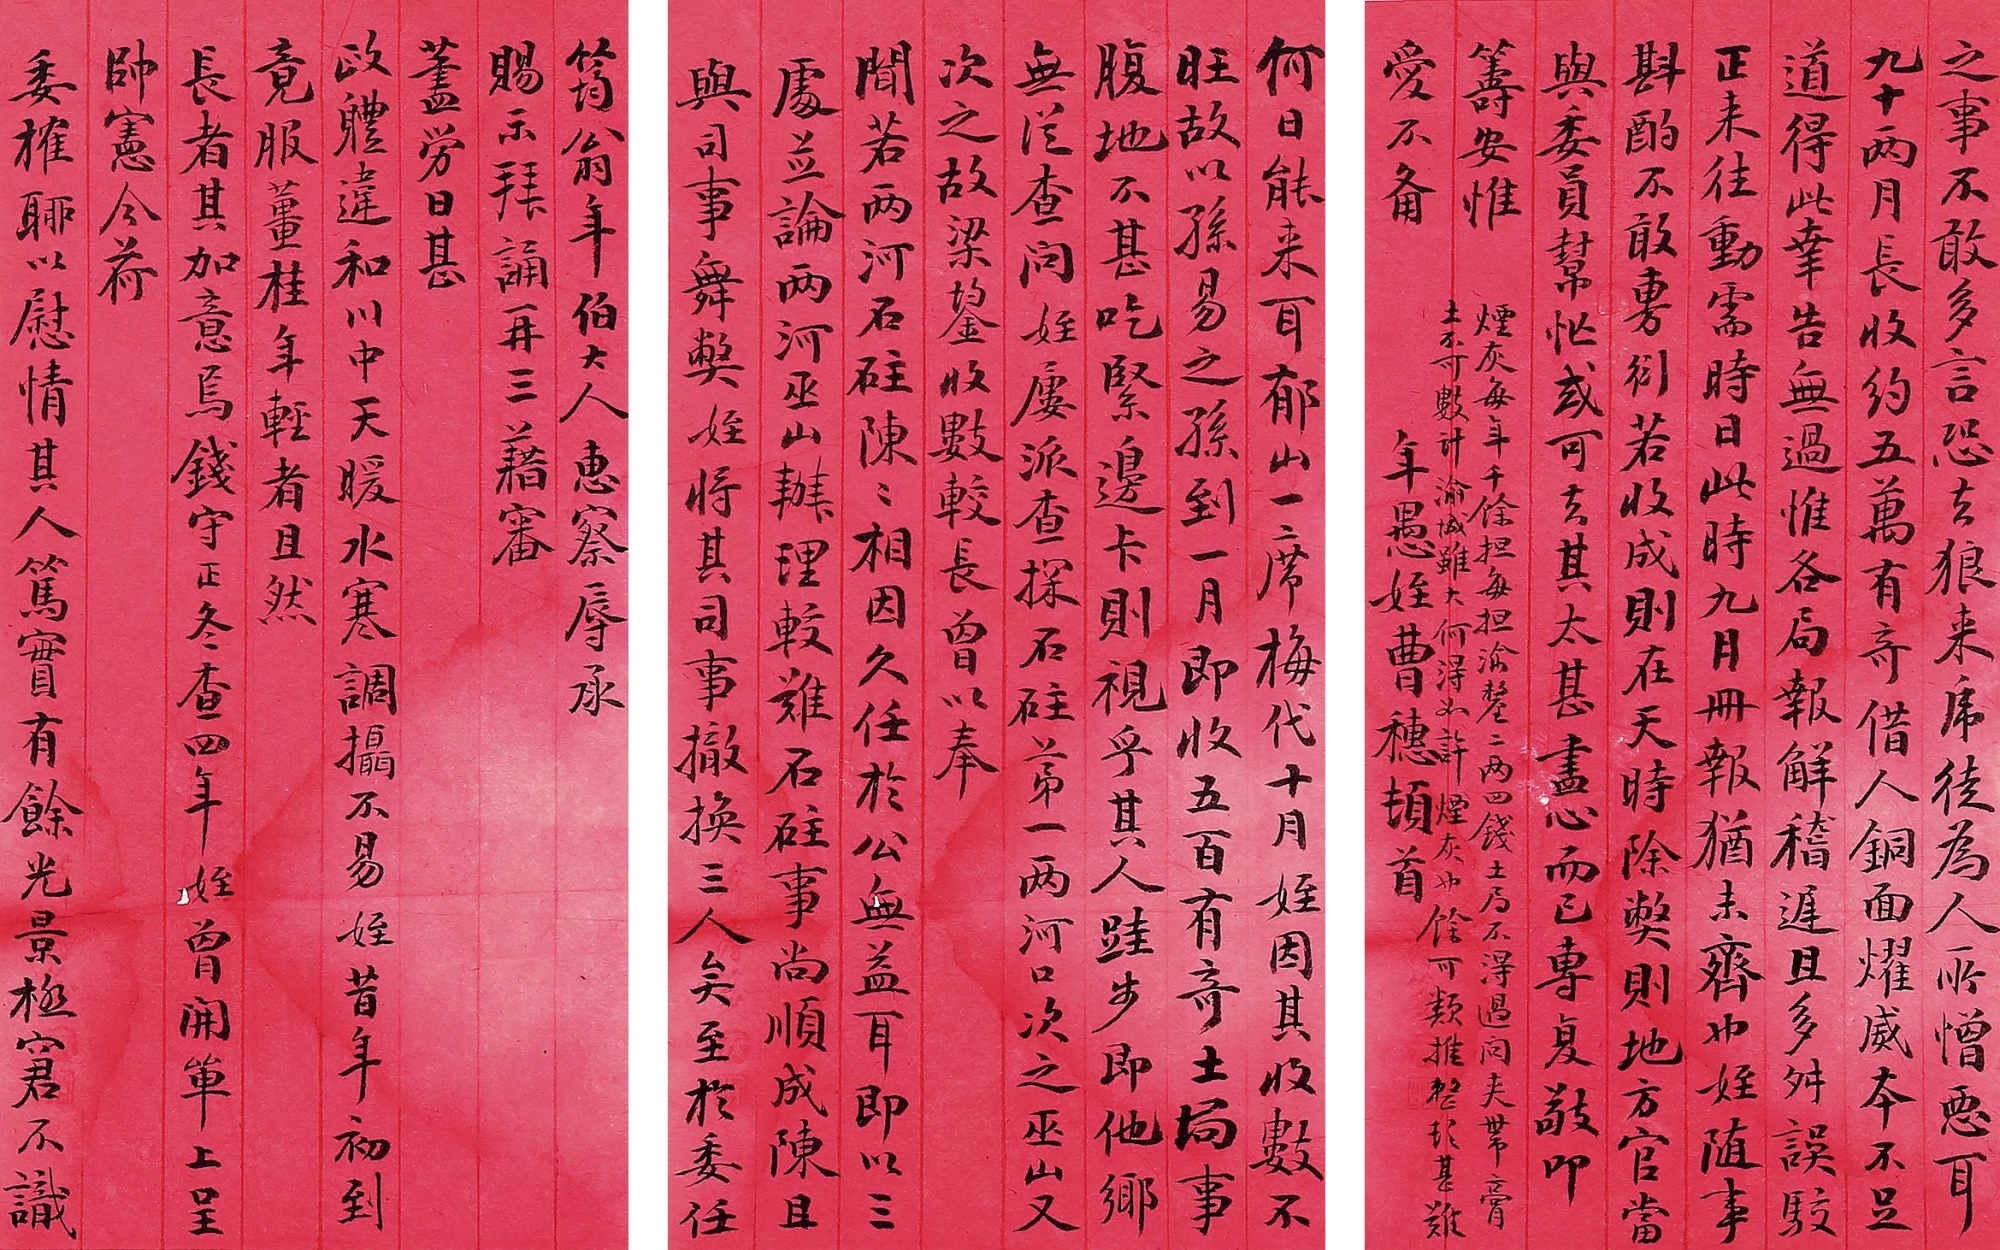 筠翁年伯大人惠察辱承
賜示拜誦再三藉審
藎勞日甚
政體違和川中天暖水寒調攝不易姪昔年初到
竟服薑桂年輕者且然
長者其加意焉錢守正冬查四年姪曾開單上呈
帥憲今荷
委榷聊以慰情其人篤實有餘光景極窘不識
何日能来耳郁山一席梅代十月姪因其收數不
旺故以孫易之孫到一月即收五百有奇土塲事
腹地不甚吃緊邊卡則視乎其人跬步即他鄉
無從查问姪屢派查探石砫第一两河口次之巫山又
次之故梁鋆收數較長曾以奉
聞若两河石砫陳〻相因久任於公無益耳即以三
處並論两河巫山辦理較難石砫事尚順成陳且
與司事舞弊姪将其司事撤換三人矣至於委任
之事不敢多言恐去狼来虎徒為人所憎惡耳
九十两月長收約五萬有奇借人銅面燿威本不足
道得此幸告無過惟各局報解稽遲且多舛誤駁
正来往動需時日此時九月冊報猶未齊也姪随事
斟酌不敢旉衍若收成則在天時除弊則地方官當
與委員幫忙或可去其太甚盡心而已專复敬叩
籌安惟
愛不备
煙灰每年千餘担每担渝釐二两四錢土局不得過问夹帶膏
土奇數計渝城雖大何得如許煙灰也餘可類推整頓甚難
年愚姪曹穗頓首